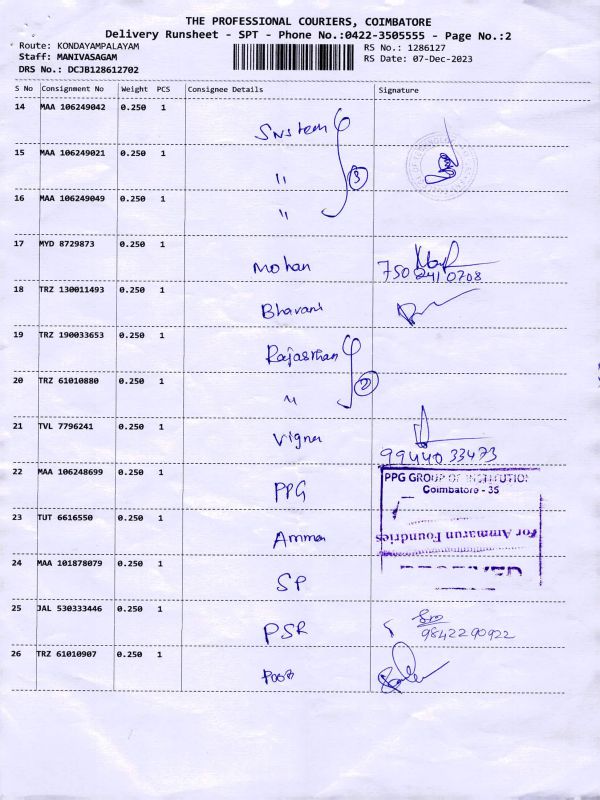 THE PROFESSIONAL COURIERS, COIMBATORE
Delivery Runsheet - SPT - Phone No.:0422-3505555 - Page No.:2
Route: KONDAYAMPALAYAM RS No.: 1286127
Staff: MANIVASAGAM RS Date: 07-Dec-2023
DRS No.: DCJB128612702
S No Consignment No Weight PCS Consignee Details Signature
14 MAA 106249042 0.250 1
15 MAA 106249021 0.250 1 " 3
16 MAA 106249049 0.250 1 "
17 MYD 8729873 0.250 1 Mohan
18 TRZ 130011493 0.250 1 Bhavani
19 TRZ 190033653 0.250 1 Rajasthan
20 TRZ 61010880 0.250 1 " 2
21 TVL 7796241 0.250 1 Vignes
99440 33473
22 MAA 106248699 0.250 1 PPG PPG GROUP OF INSTITUTION
Coimbatore - 35
23 TUT 6616550 0.250 1 Amman For Ammarun Foundries
24 MAA 101878079 0.250 1 SP
25 JAL 530333446 0.250 1 PSR 9842290922
26 TRZ 61010907 0.250 1